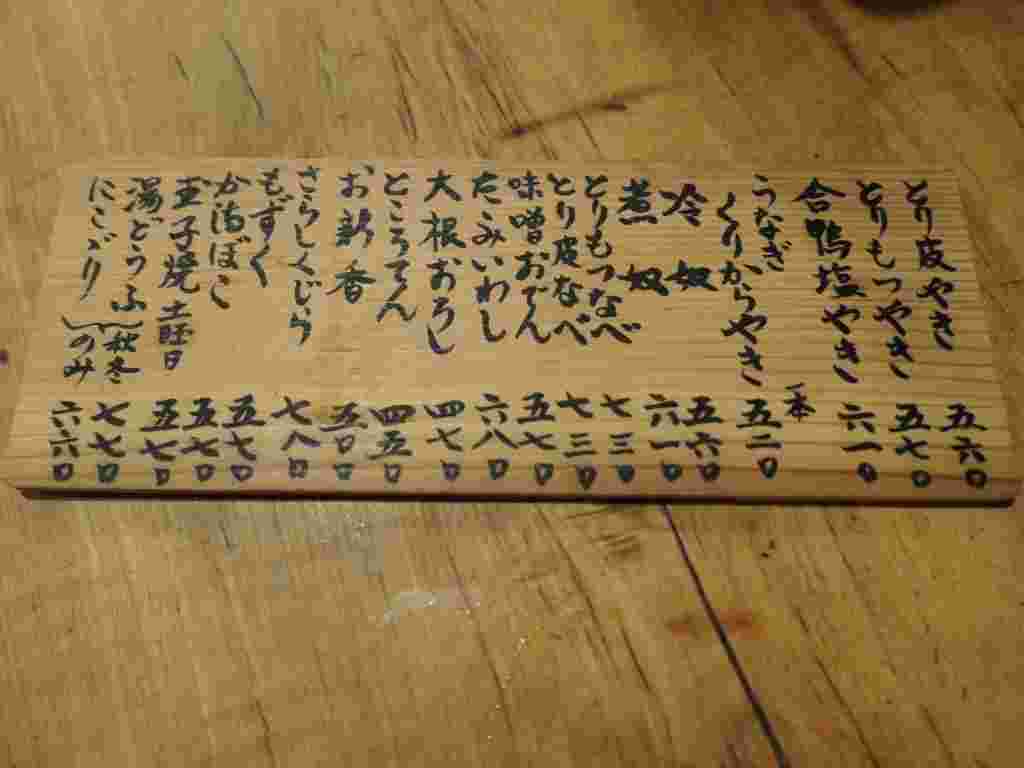 とり皮やき 五六〇
とりもつやき 五七〇
合鴨塩やき 六一〇
うなぎ
くりからやき 一本 五二〇
冷奴 五六〇
煮奴 六一〇
とりもつなべ 七三〇
とり皮なべ 七三〇
味噌おでん 五七〇
たゝみいわし 六八〇
大根おろし 四七〇
ところてん 四五〇
お新香 五〇〇
さらしくじら 七八〇
もずく 五七〇
かまぼこ 五七〇
玉子焼 土曜日 五七〇
湯どうふ 七七〇
にこごり 六六〇
秋冬
のみ